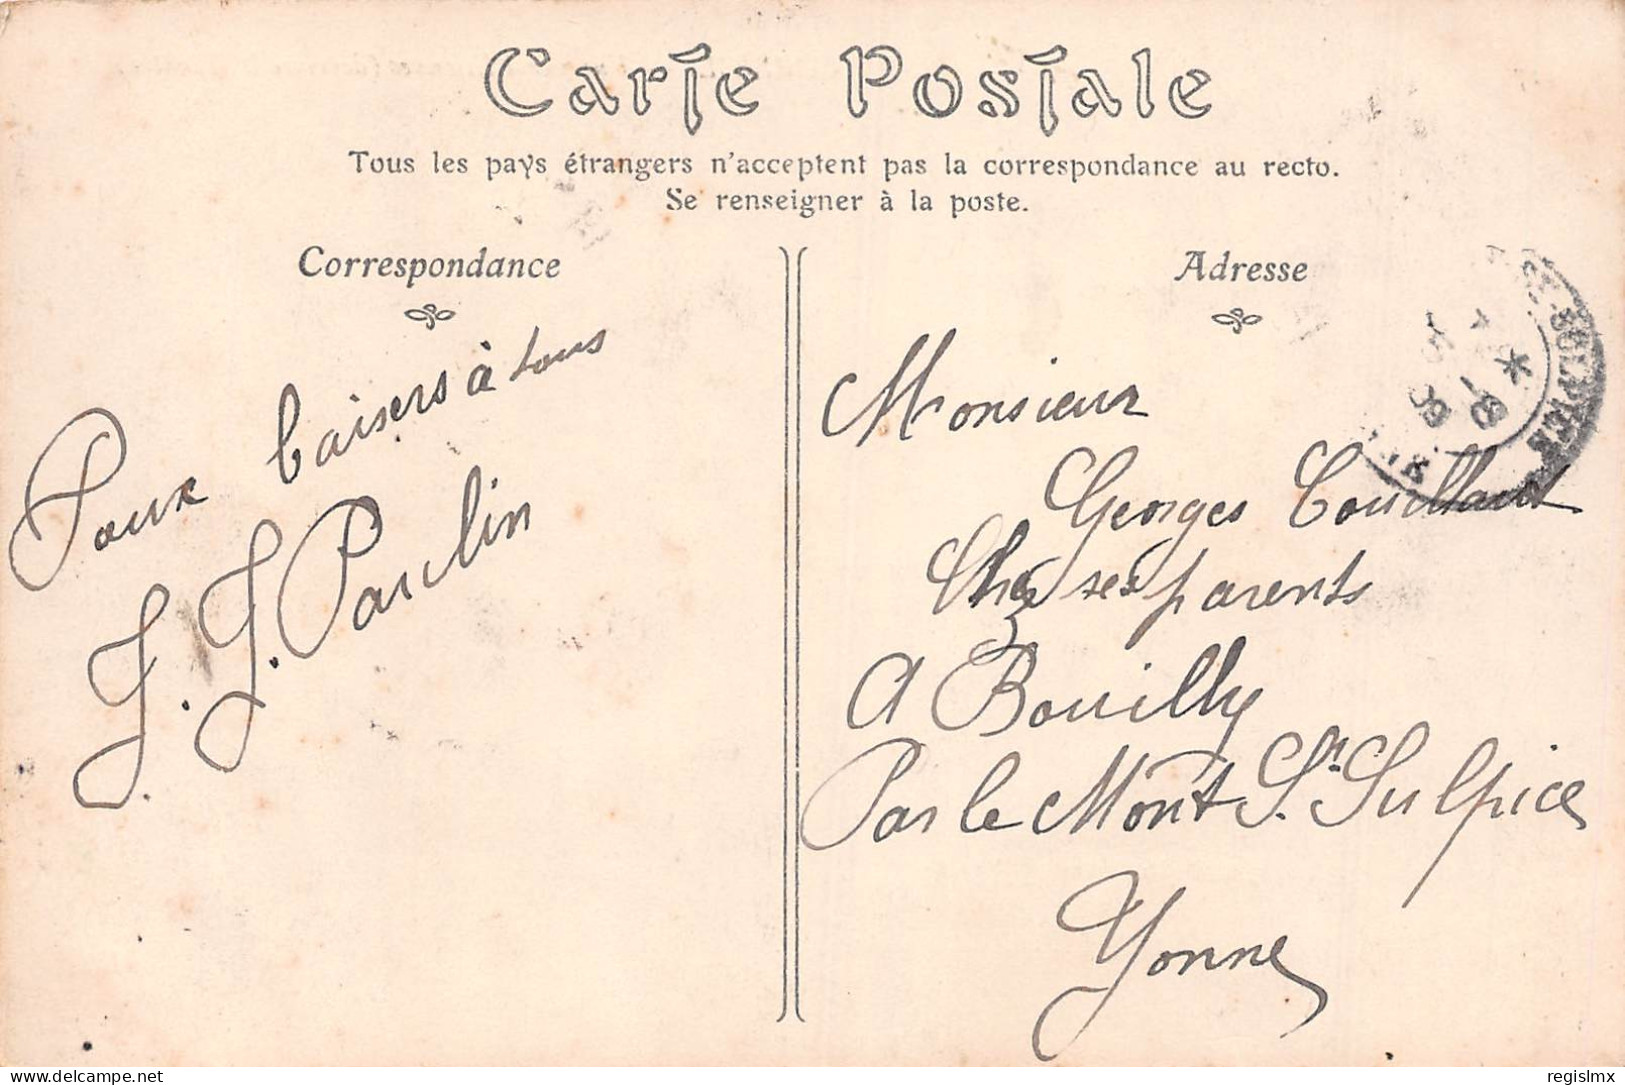 Carte Postale
Tous les pays étrangers n'acceptent pas la correspondance au recto.
Se renseigner à la poste.
Correspondance
baisers à tous
J. J. Paulin
Adresse
SULPICE
Monsieur
Georges Couillaut
Chez ses parents
A Bouilly
Par le Mont St. Sulpice
Yonne
delcampe.net
regislmx